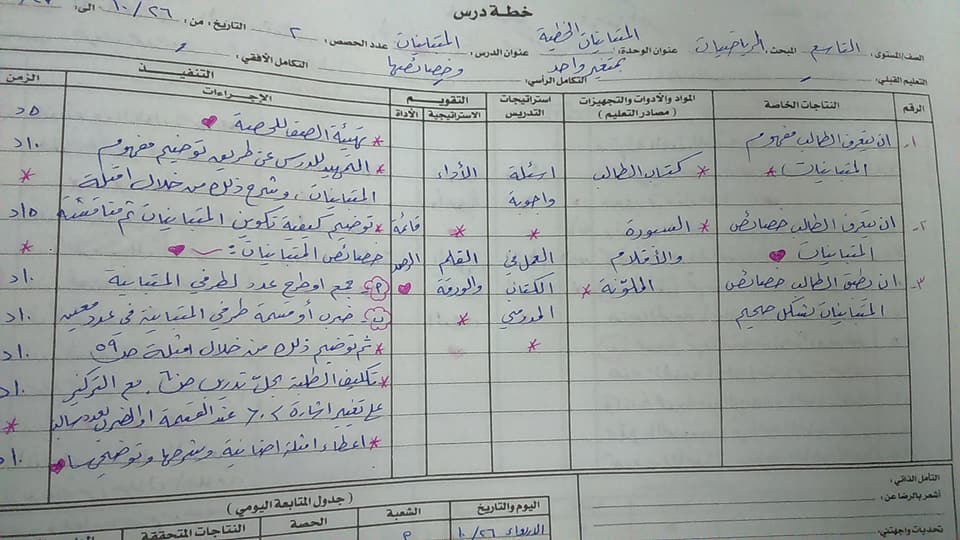 خطة درس
الصف/المستوى: التاسع المبحث: الرياضيات عنوان الوحدة: المتباينات الخطية بمتغير واحد عنوان الدرس: المتباينات وخصائصها عدد الحصص: ٢ التاريخ: من: ١٠/٢٦ الى:
التعليم القبلي: التكامل الرأسي: التكامل الأفقي:
الرقم النتاجات الخاصة المواد والأدوات والتجهيزات (مصادر التعليم) استراتيجيات التدريس التقويم الاستراتيجية الأداة التنفيذ الإجراءات الزمن
١- ان يتعرف الطالب مفهوم
المتباينات
٢- ان يتعرف الطالب خصائص
المتباينات
٣- ان يطبق الطالب خصائص
المتباينات بشكل صحيح
كتاب الطالب
السبورة
والأقلام
الملونة
اسئلة
واجوبة
العمل في
الكتاب
المدرسي
الأداء
القلم
والورقة
قائمة
الرصد
تهيئة الصف للحصة ٥د
التمهيد للدرس عن طريق توضيح مفهوم ١٠د
المتباينات، وشرح ذلك من خلال امثلة
توضيح كيفية تكوين المتباينات ثم مناقشة ١٥د
خصائص المتباينات:
أ جمع او طرح عدد لطرفي المتباينة ١٠د
ب ضرب أو قسمة طرفي المتباينة في عدد معين ١٠د
ثم توضيح ذلك من خلال امثلة ص٥٩ ١٠د
تكليف الطلبة بحل تدريب ص٦٠ مع التركيز ١٠د
على تغيير اشارة > ، < عند القسمة او الضرب بعدد سالب
اعطاء امثلة اضافية وشرحها وتوضيحها ١٠د
(جدول المتابعة اليومي)
اليوم والتاريخ الشعبة الحصة النتاجات المتحققة
الاربعاء ١٠/٢٦ أ
التأمل الذاتي:
أشعر بالرضا عن:
تحديات واجهتني: